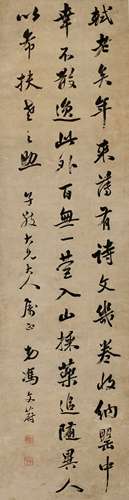 軾老矣年來薄有詩文幾卷收納罌中
幸不散逸此外百無一營入山採藥追隨異人
以希扶老之助　子敬大兄大人屬正　弟馮文蔚